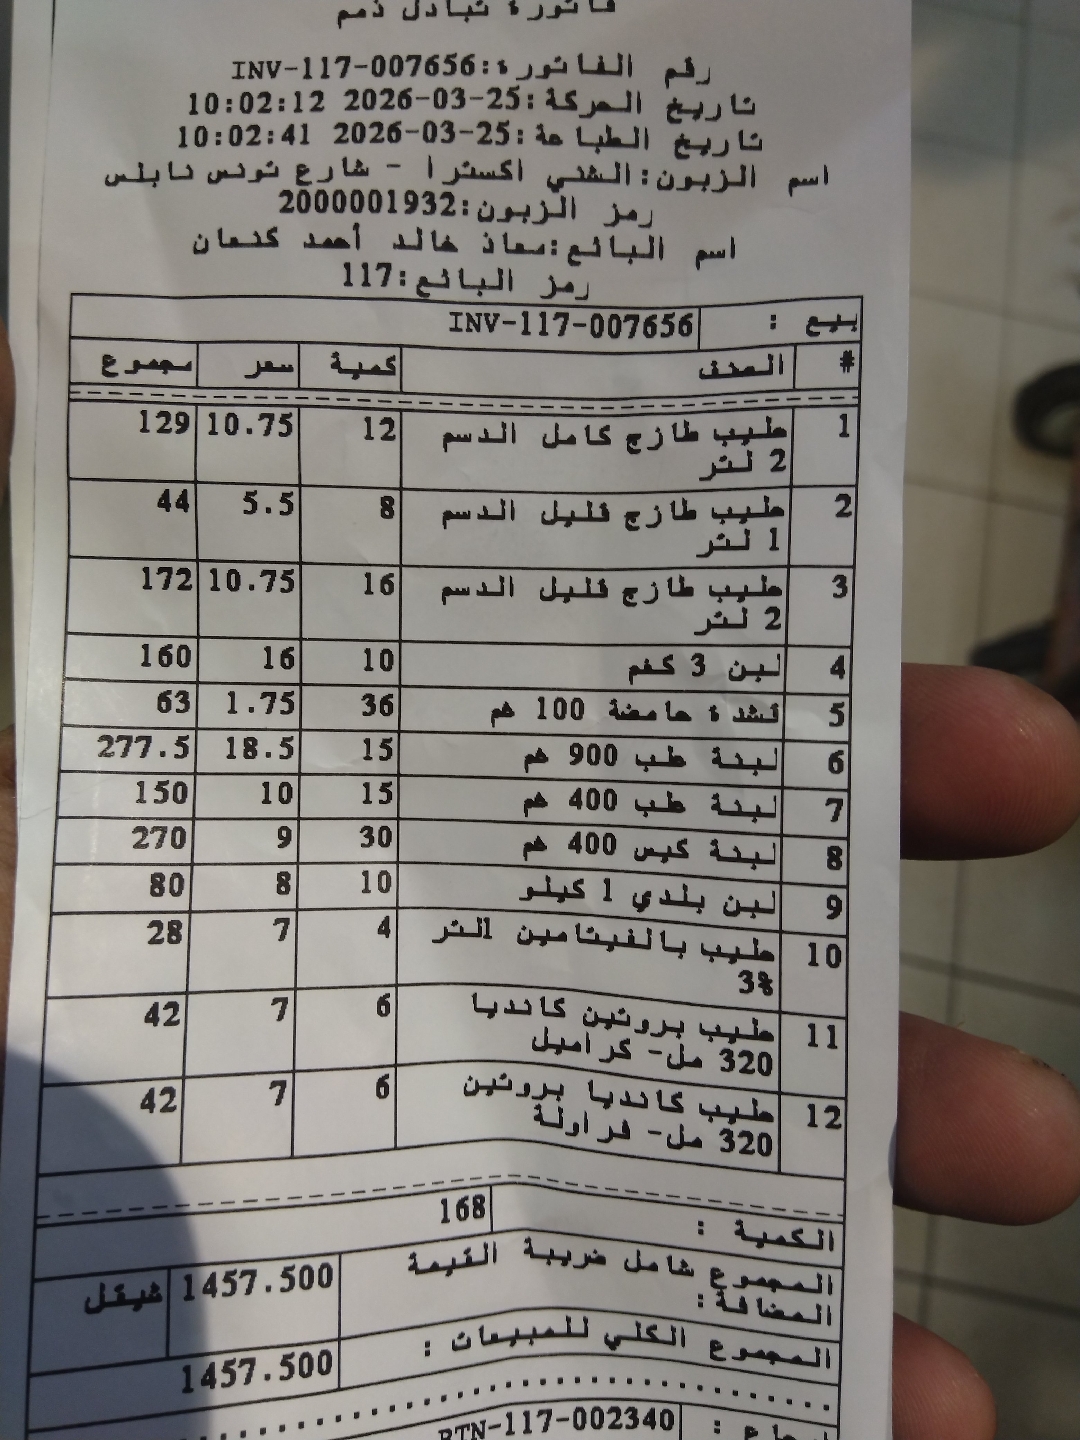 فاتورة تبادل ذمم
رقم الفاتورة:INV-117-007656
تاريخ الحركة:25-03-2026 10:02:12
تاريخ الطباعة:25-03-2026 10:02:41
اسم الزبون:الشني اكسترا - شارع تونس نابلس
رمز الزبون:2000001932
اسم البائع:معاذ خالد أحمد كنعان
رمز البائع:117
بيع : INV-117-007656
# الصنف كمية سعر مجموع
1 حليب طازج كامل الدسم 12 10.75 129
2 لتر
2 حليب طازج قليل الدسم 8 5.5 44
1 لتر
3 حليب طازج قليل الدسم 16 10.75 172
2 لتر
4 لبن 3 كغم 10 16 160
5 قشدة حامضة 100 غم 36 1.75 63
6 لبنة علب 900 غم 15 18.5 277.5
7 لبنة علب 400 غم 15 10 150
8 لبنة كيس 400 غم 30 9 270
9 لبن بلدي 1 كيلو 10 8 80
10 حليب بالفيتامين 1لتر 4 7 28
3%
11 حليب بروتين كانديا 6 7 42
320 مل- كراميل
12 حليب كانديا بروتين 6 7 42
320 مل- فراولة
الكمية : 168
المجموع شامل ضريبة القيمة 1457.500 شيقل
المضافة :
المجموع الكلي للمبيعات : 1457.500
ارجاع : RTN-117-002340